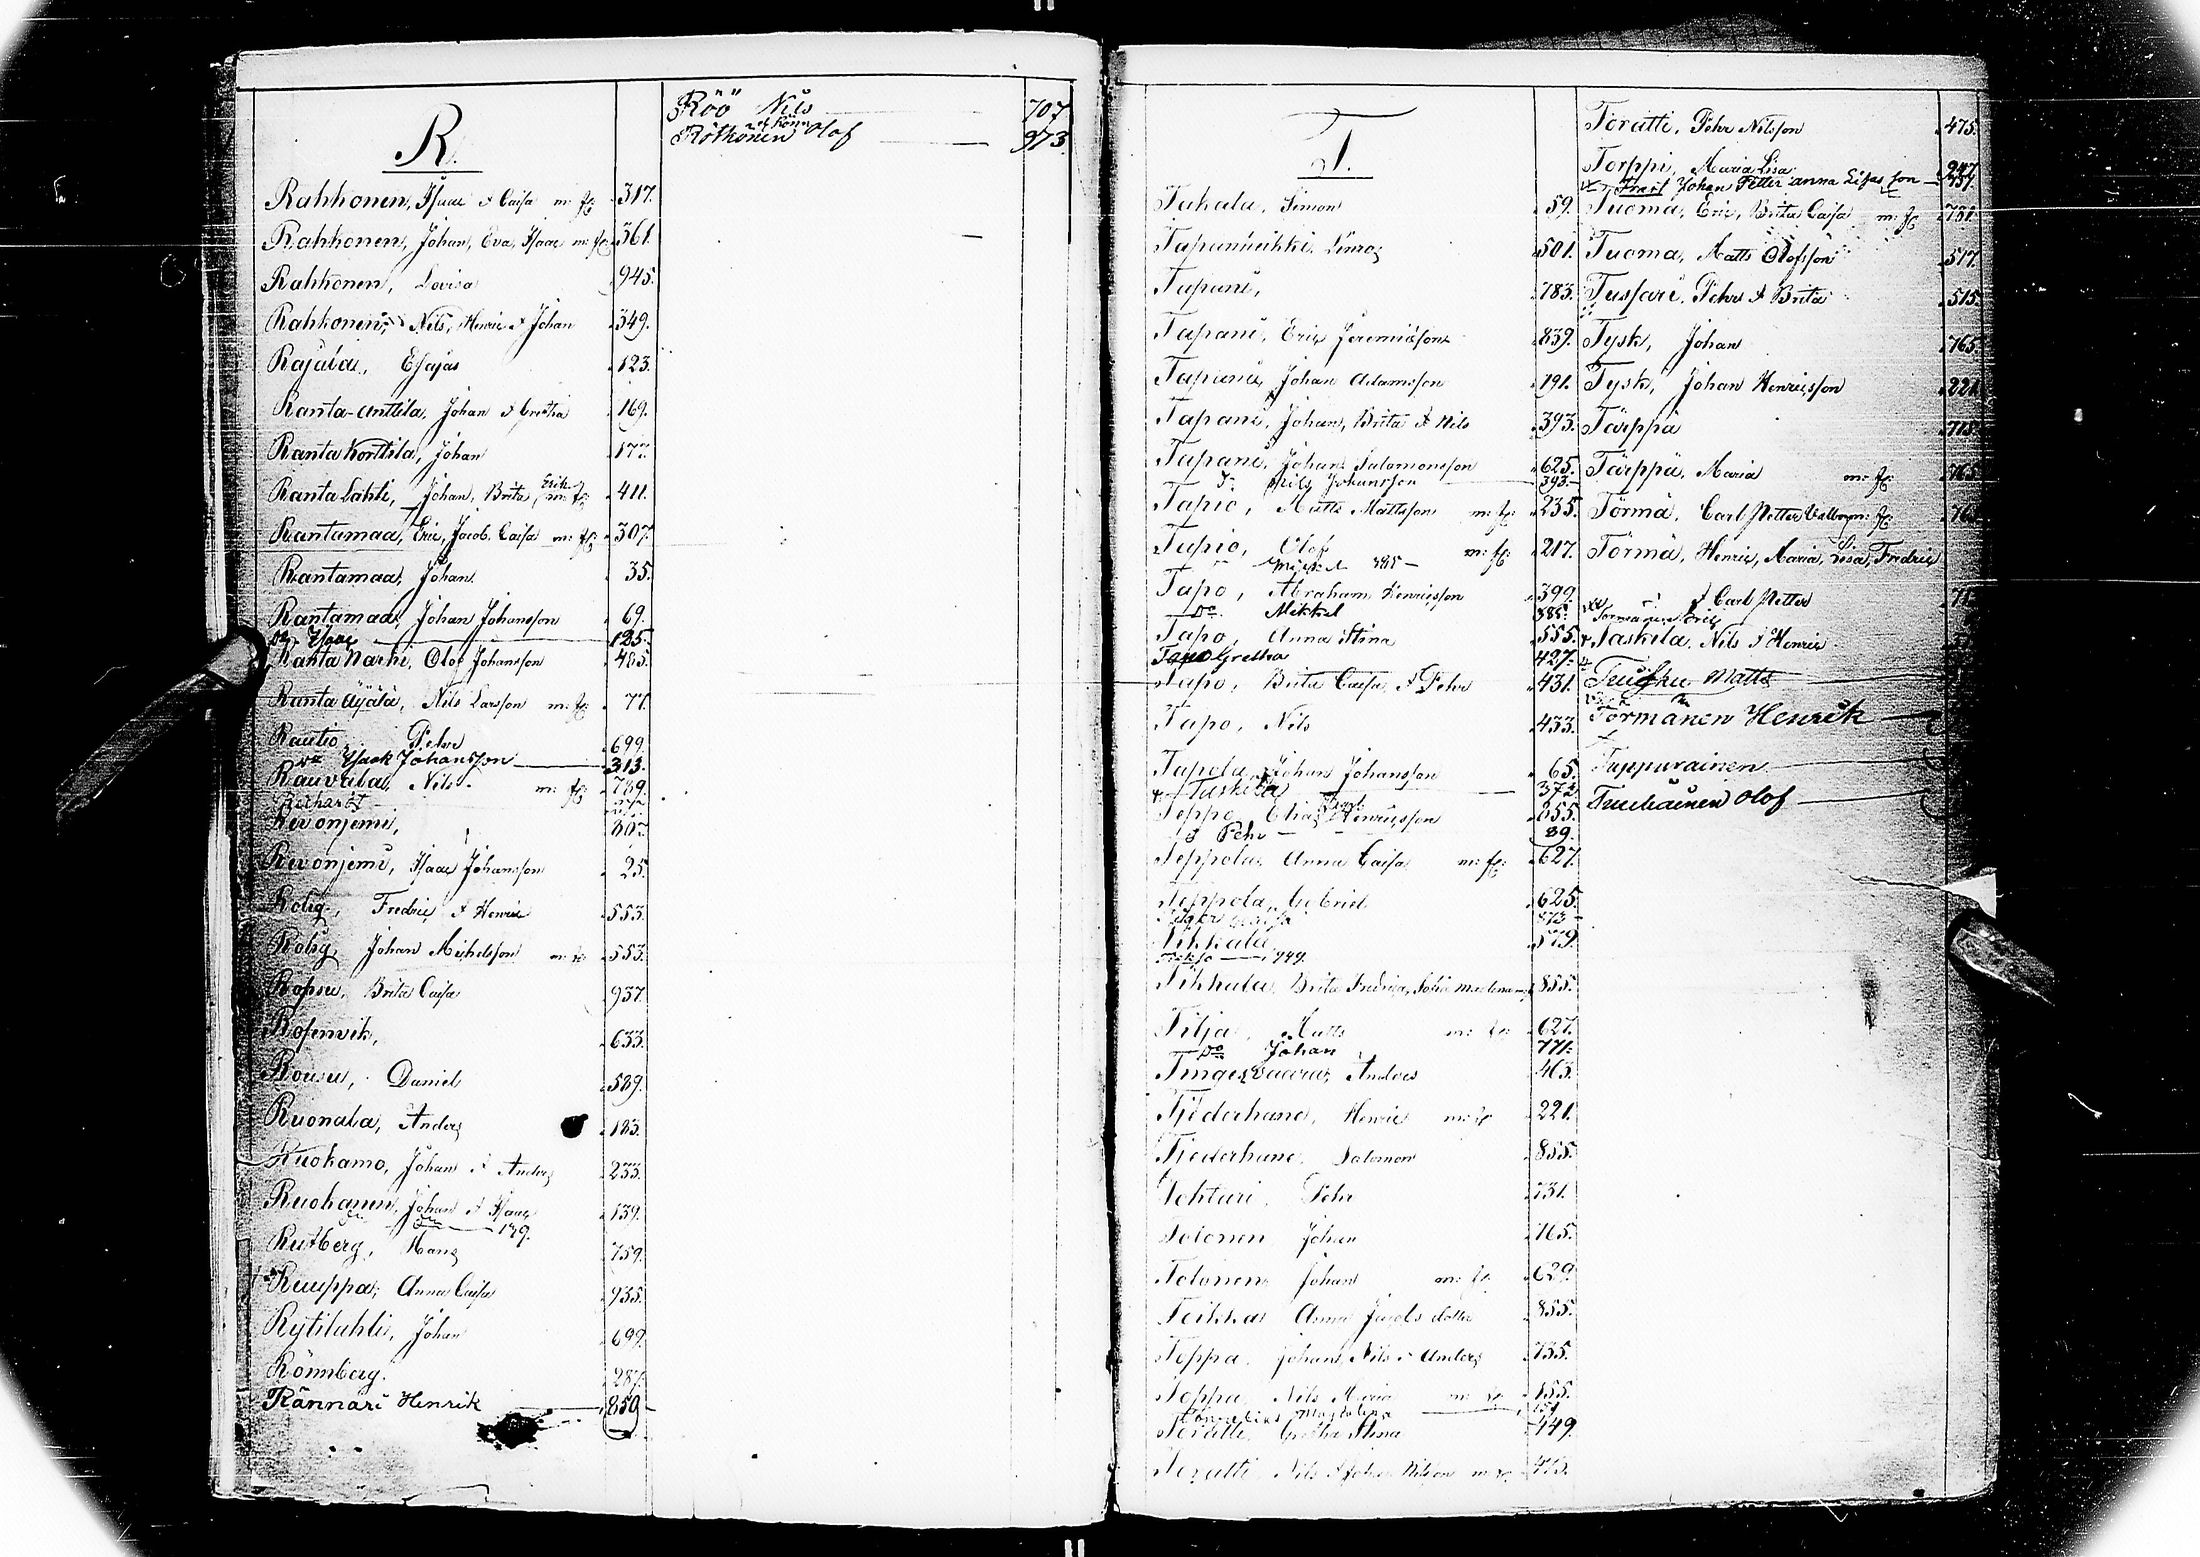 R.
Rahkonen, Isaac & Caisa m: fl: 317.
Rahkonen, Johan, Eva, Isaac m: fl: 361.
Rahkonen, Lovisa 945.
Rahkonen, Nils, Henric & Johan 349.
Rajala, Esajas 123.
Ranta-anttila, Johan & Gretha 169.
Ranta Korttila, Johan 177.
Ranta Lahti, Johan, Brita Erik m: fl: 411.
Rantamaa, Eric, Jacob, Caisa m: fl: 307.
Rantamaa, Johan 35.
Rantamaa, Johan Johansson 69.
Do Isaac 125.
Ranta Narhi, Olof Johansson 485.
Ranta äijälä, Nils Larsson m: fl: 77.
Rautio, Pehr 699.
Do Isaak Johansson 313.
Rauvala, Nils m: fl: 789.
Revonjemi, 307.
Revonjemi, Isaac Johansson 25.
Rolig, Fredric & Henric 553.
Rolig, Johan Michelsson 553.
Ropsu, Brita Caisa 937.
Rosenvik, 633.
Rousu, Daniel 589.
Ruonala, Anders 183.
Ruokamo, Johan & Anders 233.
Ruokanen, Johan & Isaac 139.
179.
Rutberg, Hans 759.
Ruuppa, Anna Caisa 935.
Rytilahti, Johan 699.
Rönnberg. 287.
Rännäri Henrik 859
Röö Nils 707
Rötkönen Olof 973
T.
Takala, Simon 59.
Tapaninikki, 501.
Tapani, 783.
Tapani, Eric Jeremiasson 839.
Tapani, Johan Adamsson 191.
Tapani, Johan, Brita & Nils 393.
Tapani, Johan Salomonsson 625.
Nils Johansson 393.
Tapio, Matts Mattsson m: fl: 235.
Tapio, Olof m: fl: 217.
Tapo, Abraham Henricsson 399.
Do Mikkel 385.
Tapo, Anna Stina 555.
Tapo Gretha 427.
Tapo, Brita Caisa & Pehr 431.
Tapo, Nils 433.
Tapola, Johan Johansson 65.
Taskila 372
Teppo, Elias Henricsson 855.
Pehr 89.
Teppola, Anna Caisa m: fl: 627.
Teppola, Gabriel 625.
873
Tikkala 579.
749.
Tikkala, Brita Fredrica, Sofia 855.
Tilja, Matts 627.
Do Johan 771.
Tingesvaara, Anders 463.
Tjederhane, Henric 221.
Tjederhane, Salomon 855.
Tohturi, Pehr 731.
Tolonen Johan 165.
Tolonen Johan 629.
Toikka Anna Jacobs dotter 855.
Toppa, Johan, Nils & Anders 755.
Toppa, Nils, Maria 155.
Toratti, Gretha Stina 449.
Toratti, Nils & Johan Nilsson 475.
Toratti, Pehr Nilsson 475.
Torppi, Maria Lisa 247
Johan Petter anna Lisas son 757.
Tuoma, Eric, Brita Caisa m: fl: 751.
Tuoma, Matts Olofsson 517.
Tussari, Pehr & Brita 515.
Tysk, Johan 765.
Tysk, Johan Henricsson 221
Tärppä 715.
Tärppä, Maria m: fl: 765.
Törmä, Carl Petter m: fl:
Törmä, Henric, Maria, Lisa, Fredric
& Carl Petter
Törmänen Eric
Taskila, Nils & Henric
Matts
Törmänen Henrik
Tappurainen
Olof